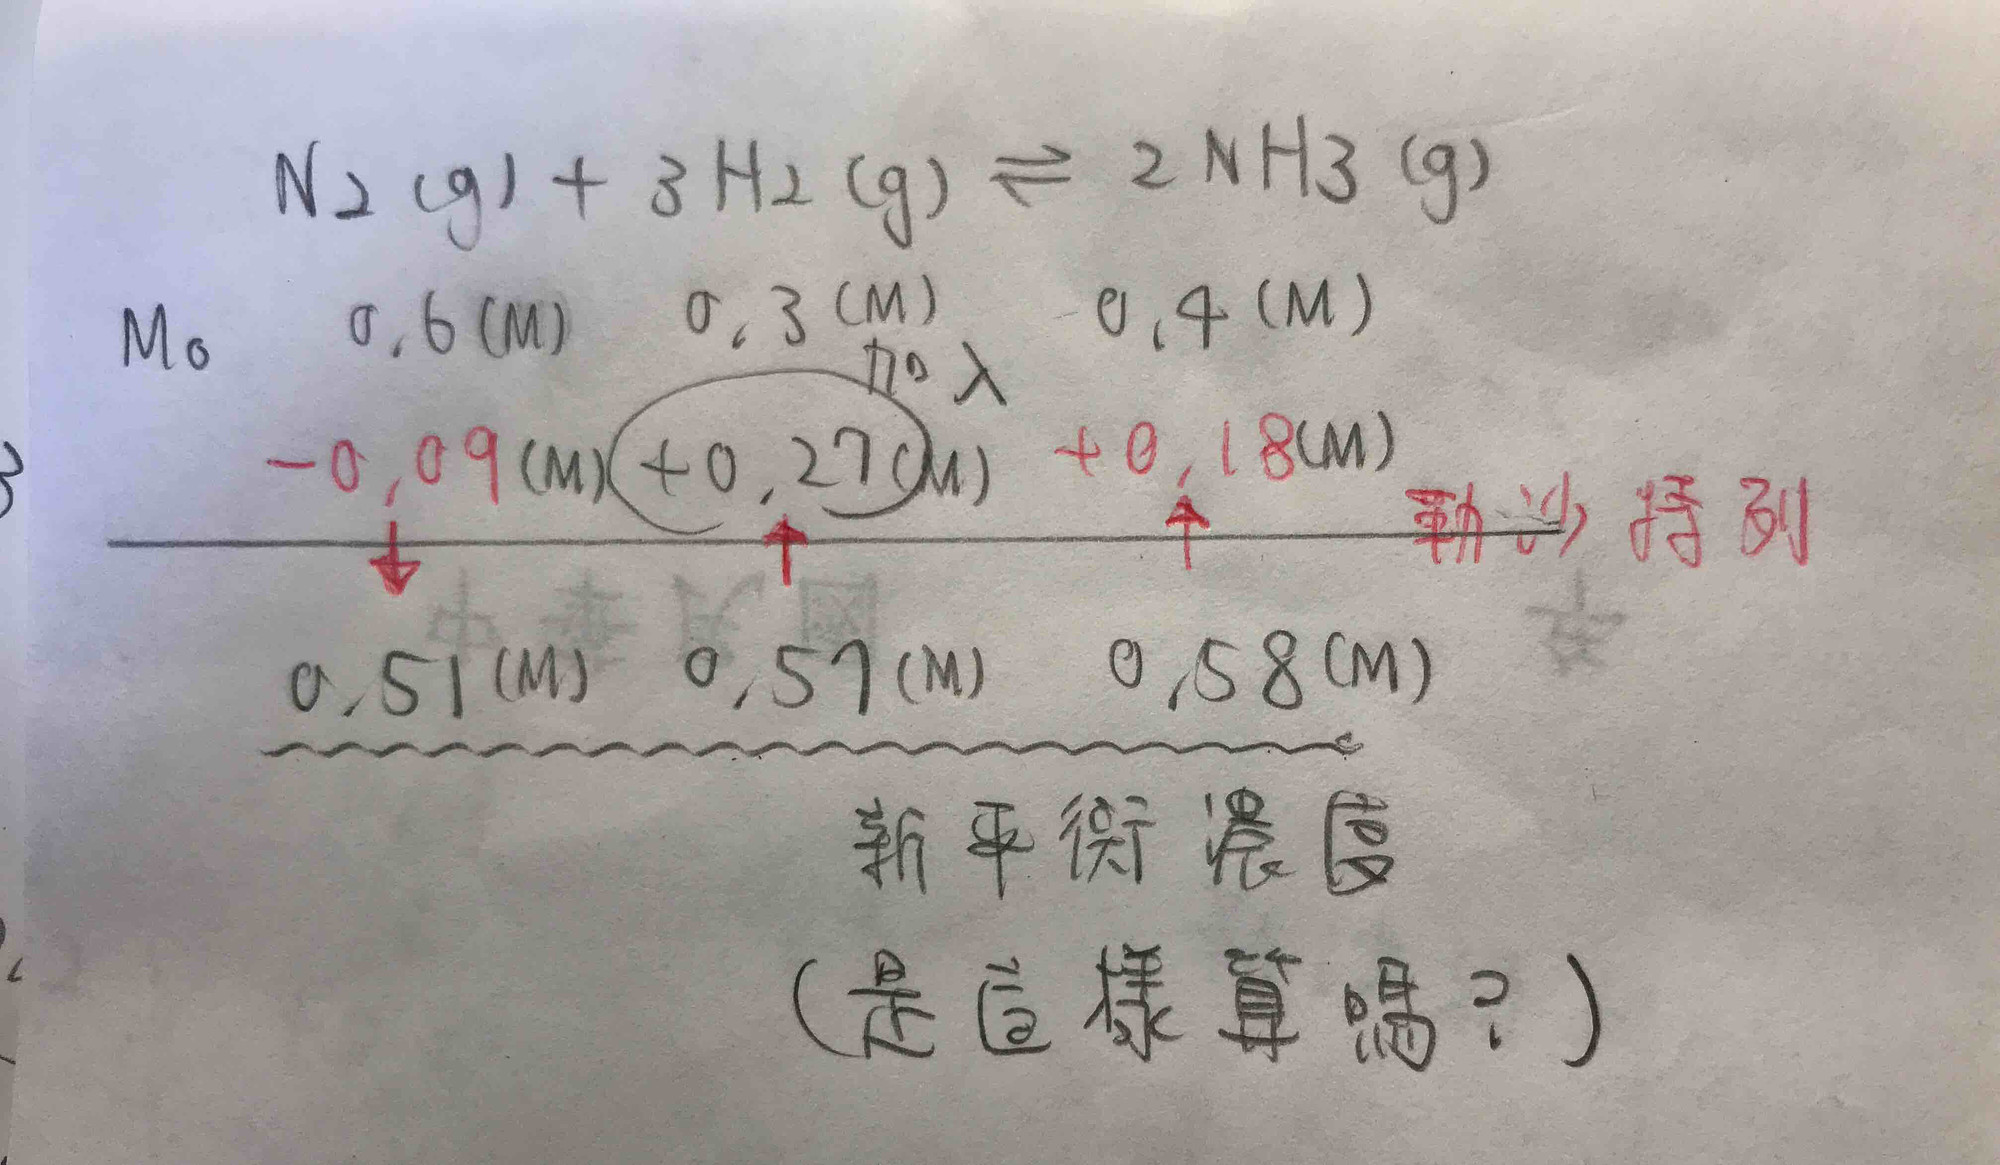 N2(g) + 3H2(g) ⇌ 2NH3(g)
M0 0.6(M) 0.3(M) 0.4(M)
加入
-0.09(M) +0.27(M) +0.18(M)
勒沙特列
0.51(M) 0.57(M) 0.58(M)
新平衡濃度
(是這樣算嗎?)